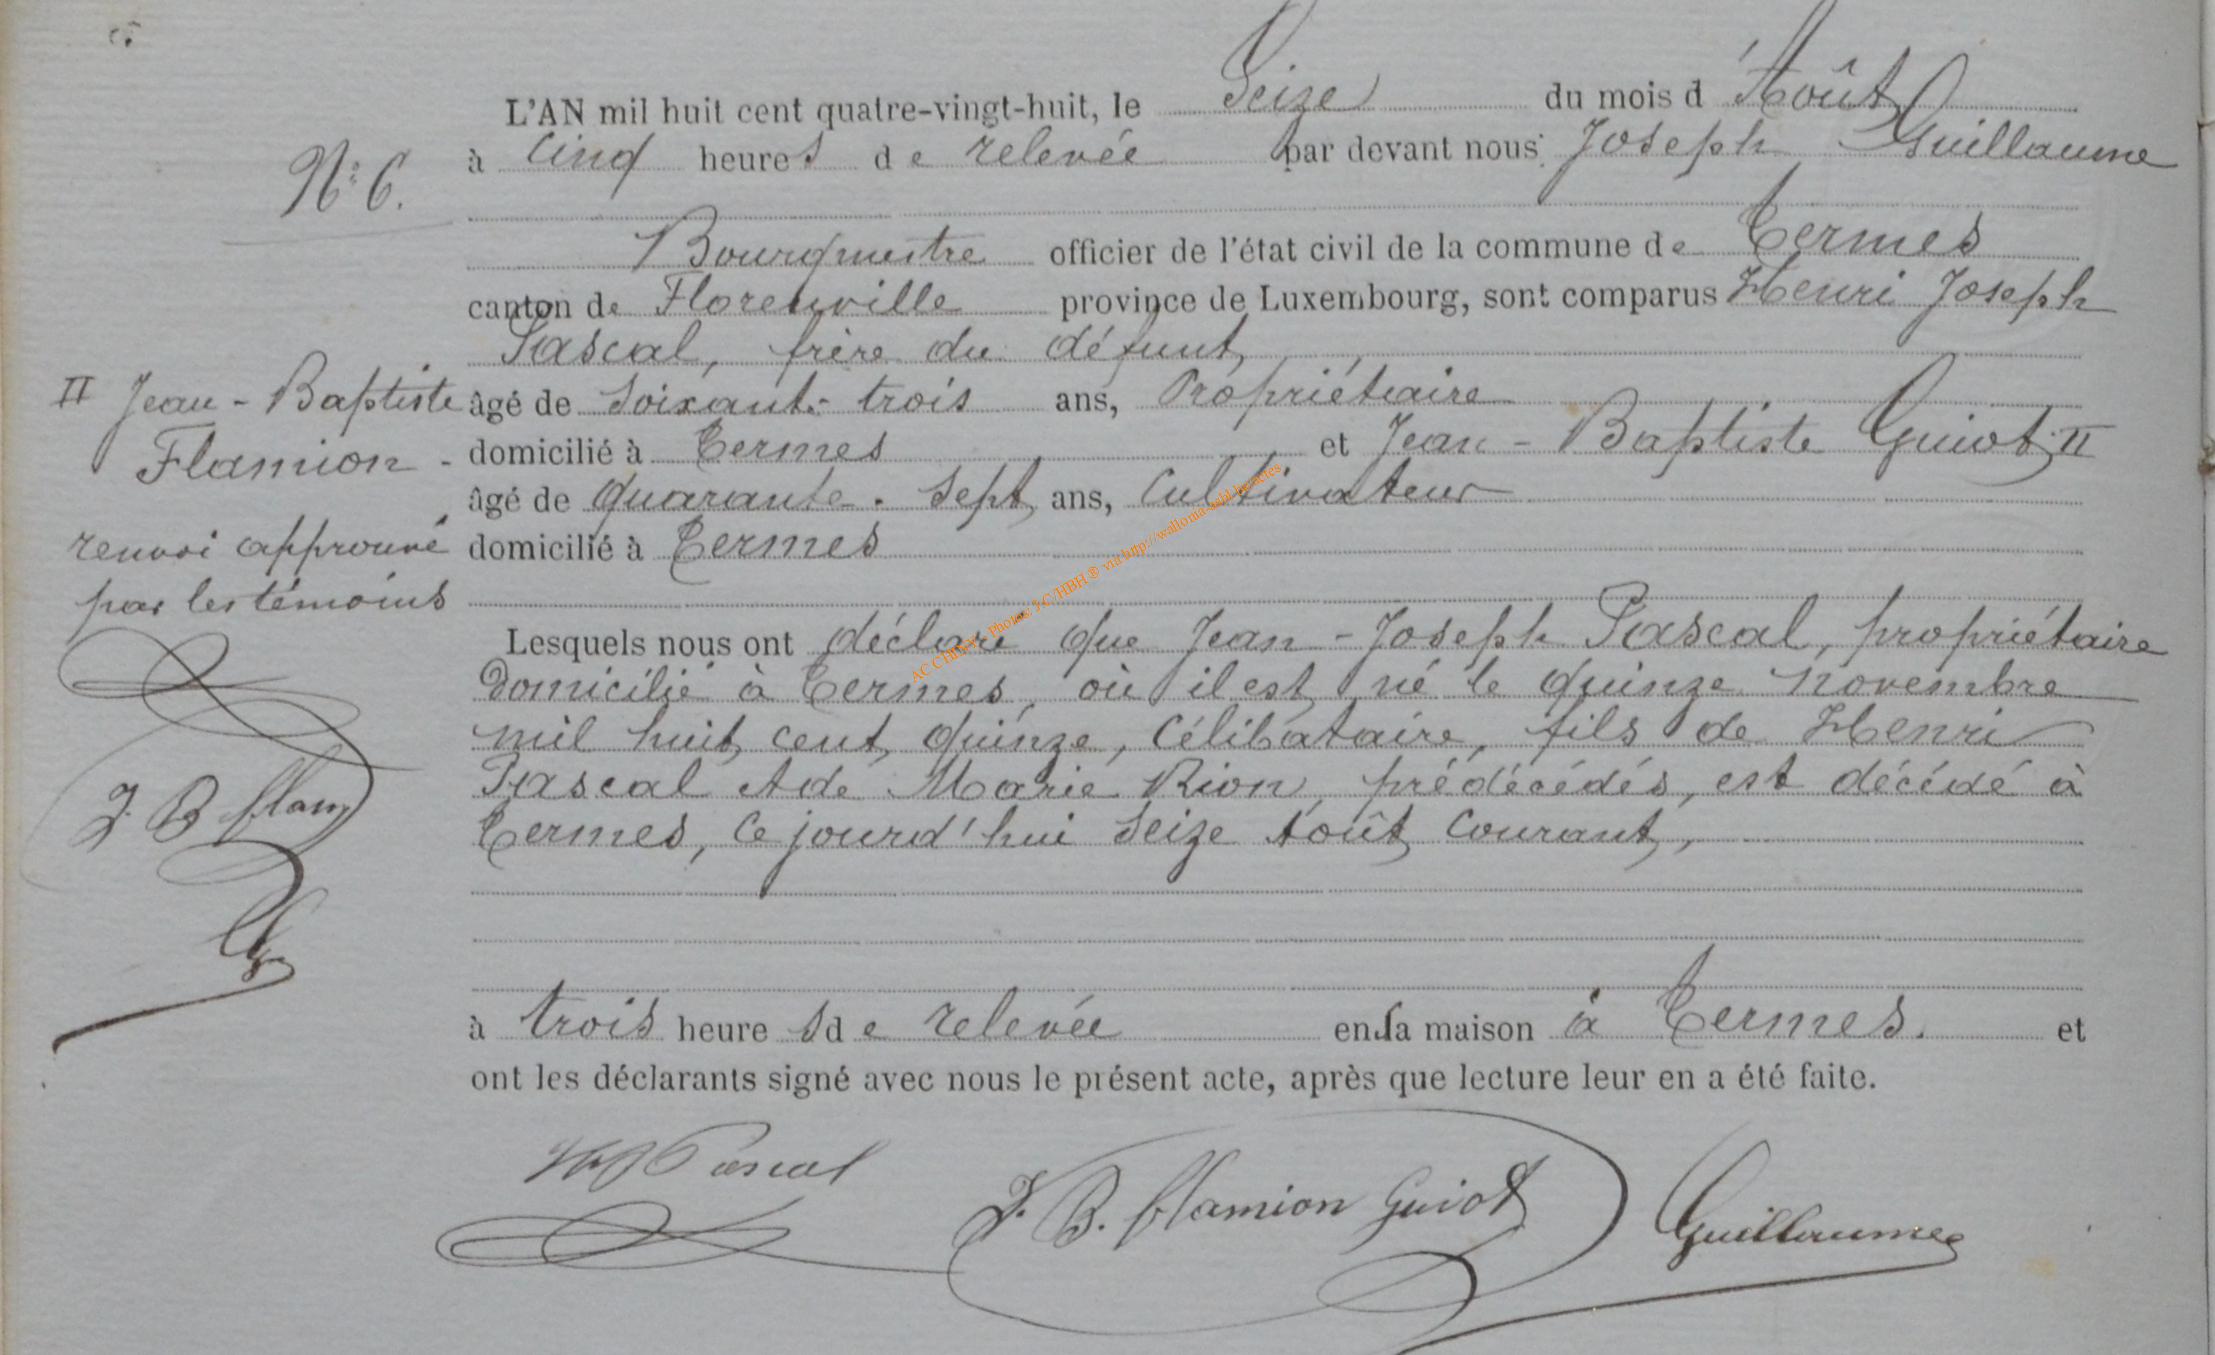 L'AN mil huit cent quatre-vingt-huit, le Seize du mois d'Août
à cinq heures de relevée par devant nous Joseph Guillaume
N° 6.
Bourgmestre officier de l'état civil de la commune de Termes
canton de Florenville province de Luxembourg, sont comparus Henri Joseph
Pascal, frère du défunt,
II Jean-Baptiste
Flamion -
renvoi approuvé
par les témoins
J. B flam
âgé de soixante-trois ans, Propriétaire
domicilié à Termes et Jean-Baptiste Guiot II
âgé de quarante-sept ans, Cultivateur
domicilié à Termes
Lesquels nous ont déclaré que Jean-Joseph Pascal, propriétaire
domicilié à Termes, où il est né le quinze novembre
mil huit cent quinze, célibataire, fils de Henri
Pascal et de Marie Rion, prédécédés, est décédé à
Termes, ce jourd'hui seize Août courant,
à trois heures de relevée en sa maison à Termes. et
ont les déclarants signé avec nous le présent acte, après que lecture leur en a été faite.
Pascal J. B. flamion Guiot Guillaume
AC CHINY - Photos J.C/HBH ® via http://wallonia-asbl.be/actes